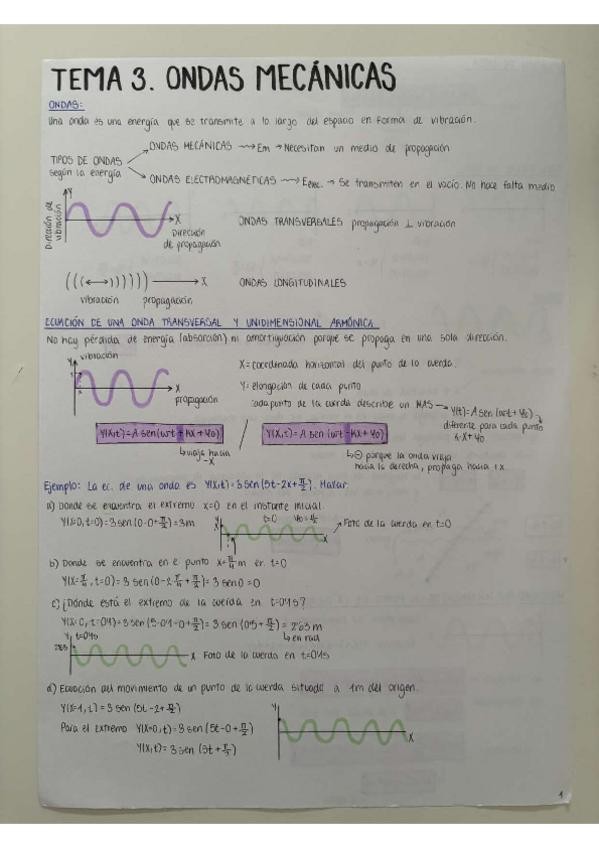 TEMA 3. ONDAS MECÁNICAS
ONDAS:
Una onda es una energía que se transmite a lo largo del espacio en forma de vibración.
TIPOS DE ONDAS según la energía
ONDAS MECÁNICAS → Em → Necesitan un medio de propagación
ONDAS ELECTROMAGNÉTICAS → → Se transmiten en el vacío. No hace falta medio
Y
Dirección de vibración
X
Dirección de propagación
ONDAS TRANSVERSALES propagación ⊥ vibración
(((↔)))))) → X
vibración propagación
ONDAS LONGITUDINALES
ECUACIÓN DE UNA ONDA TRANSVERSAL Y UNIDIMENSIONAL ARMÓNICA
No hay pérdida de energía (absorción) ni amortiguación porque se propaga en una sola dirección.
Y vibración
X
propagación
X = coordenada horizontal del punto de la cuerda.
Y = elongación de cada punto
cada punto de la cuerda describe un MAS → Y(t) = A sen (wt + φ0)
diferente para cada punto
K·X+φ0
Y(X,t) = A sen (wt + KX + φ0) / Y(X,t) = A sen (wt - KX + φ0)
↳ viaja hacia -X
↳ ⊖ porque la onda viaja hacia la derecha, propaga hacia +X
Ejemplo: La ec. de una onda es Y(X,t) = 3 sen (5t - 2x + π/2). Hallar:
a) Donde se encuentra el extremo x=0 en el instante inicial.
Y(X=0, t=0) = 3 sen (0-0+π/2) = 3m
Y
t=0
X
Foto de la cuerda en t=0
b) Donde se encuentra en e punto x=π/4 m en t=0
Y(X=π/4, t=0) = 3 sen (0-2·π/4+π/2) = 3 sen 0 = 0
c) ¿Dónde está el extremo de la cuerda en t=0'1s?
Y(X=0, t=0'1) = 3 sen (5·0'1-0+π/2) = 3 sen (0'5+π/2) = 2'63 m
↳ en rad
Y t=0'1s
2'63
X Foto de la cuerda en t=0'1s
d) Ecuación del movimiento de un punto de la cuerda situado a 1m del origen.
Y(X=1, t) = 3 sen (5t-2+π/2)
Para el extremo Y(X=0, t) = 3 sen (5t-0+π/2)
Y(X,t) = 3 sen (5t+π/2)
Y
X
1